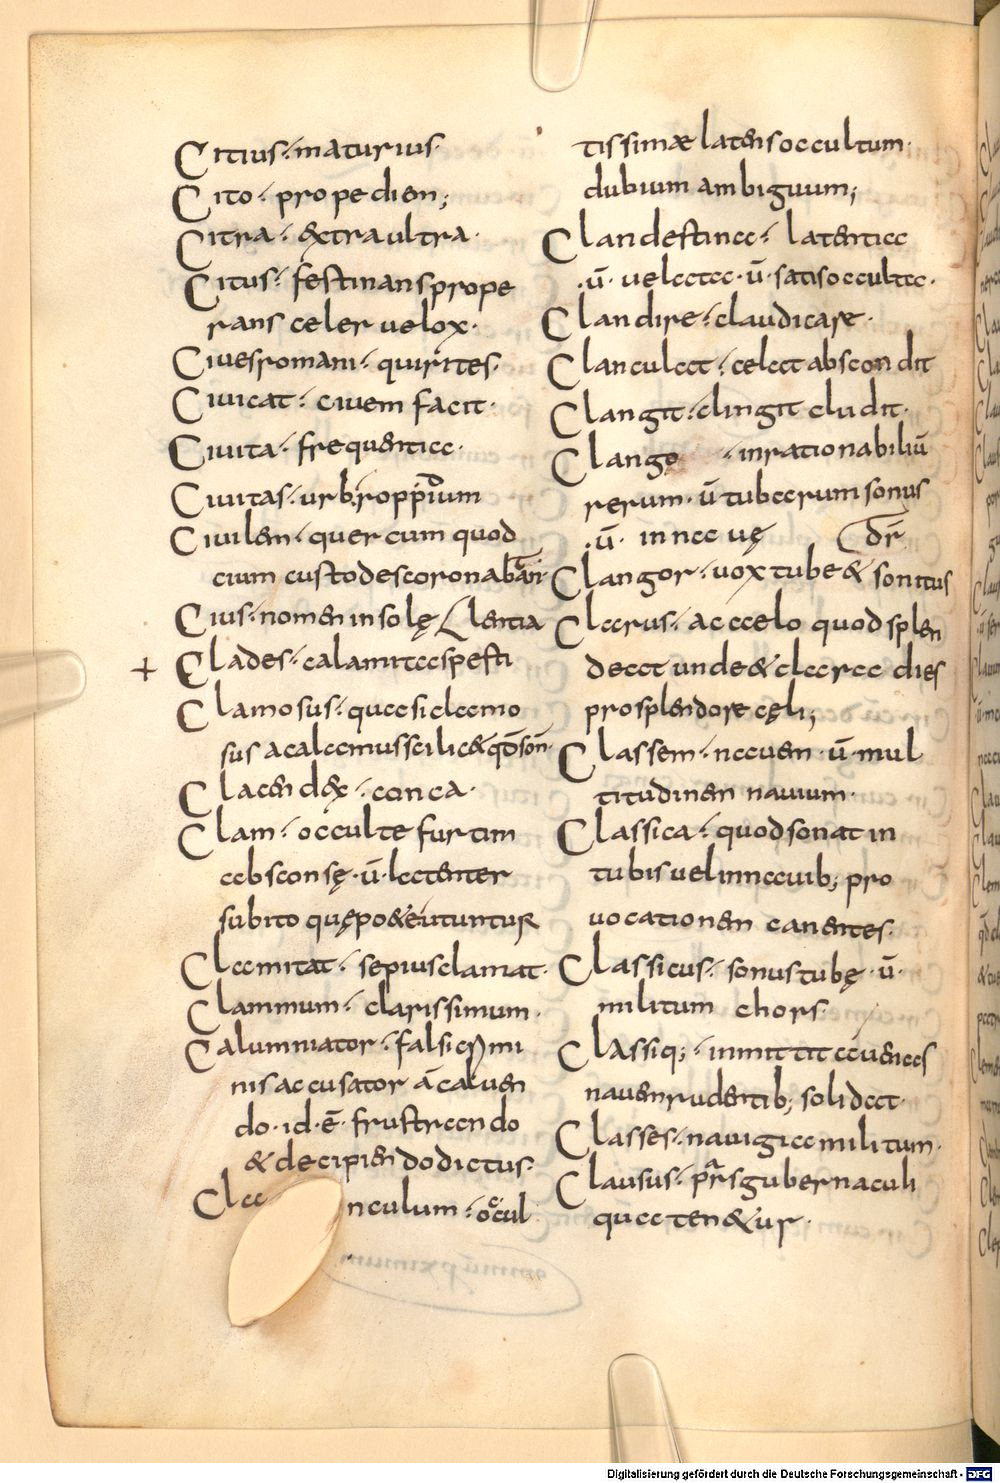 Citius · maturius ·
Cito · propediem ;
Citra · extra ultra ·
Citus · festinans prope
rans celer uelox ·
Ciues romani · quirites ·
Ciuicat · ciuem facit ·
Ciuita · frequentia ·
Ciuitas · urb
Ciuilem · quercum quod
cium custodes
Cius · nomen insolę
+ Clades · calamitas pesti lentia
Clamosus · quasi clamo
sus a calamus
Clacendex · conca ·
Clam · occulte furtim
absconsę · ū · latenter
subito
Clamitat · sepius clamat ·
Clammum · clarissimum ·
Calumniator · falsi
nis accusator a caluen
do · id · ē · frustrando
& decipiendo dictus ·
Cla nculum · occul
tissimæ latens occultum ·
dubium ambiguum ;
Clandestina · latentia
· ū · uelata · ū · satis occulta ·
Clandire · claudicare ·
Clanculat · celat abscondit
Clangit · clingit cludit ·
Clango · inrationabiliū
rerum · ū tubarum sonus
· ū · in naue dr̄
Clangor · uox tube & sonitus
Clarus · a caelo quod splen
deat unde & clarae dies
pro splendore cęli ;
Classem · nauem · ū · mul
titudinem nauium ·
Classica · quod sonat in
tubis uel in nauib; pro
uocationem canentes ·
Classicus · sonus tubę · ū ·
militum chors ·
Classiq; · inmittit auenas
nauem rudentib; solidat ·
Classes · nauigia militum ·
Clausus · pars gubernaculi
qua ten&ur ·
Digitalisierung gefördert durch die Deutsche Forschungsgemeinschaft - DFG